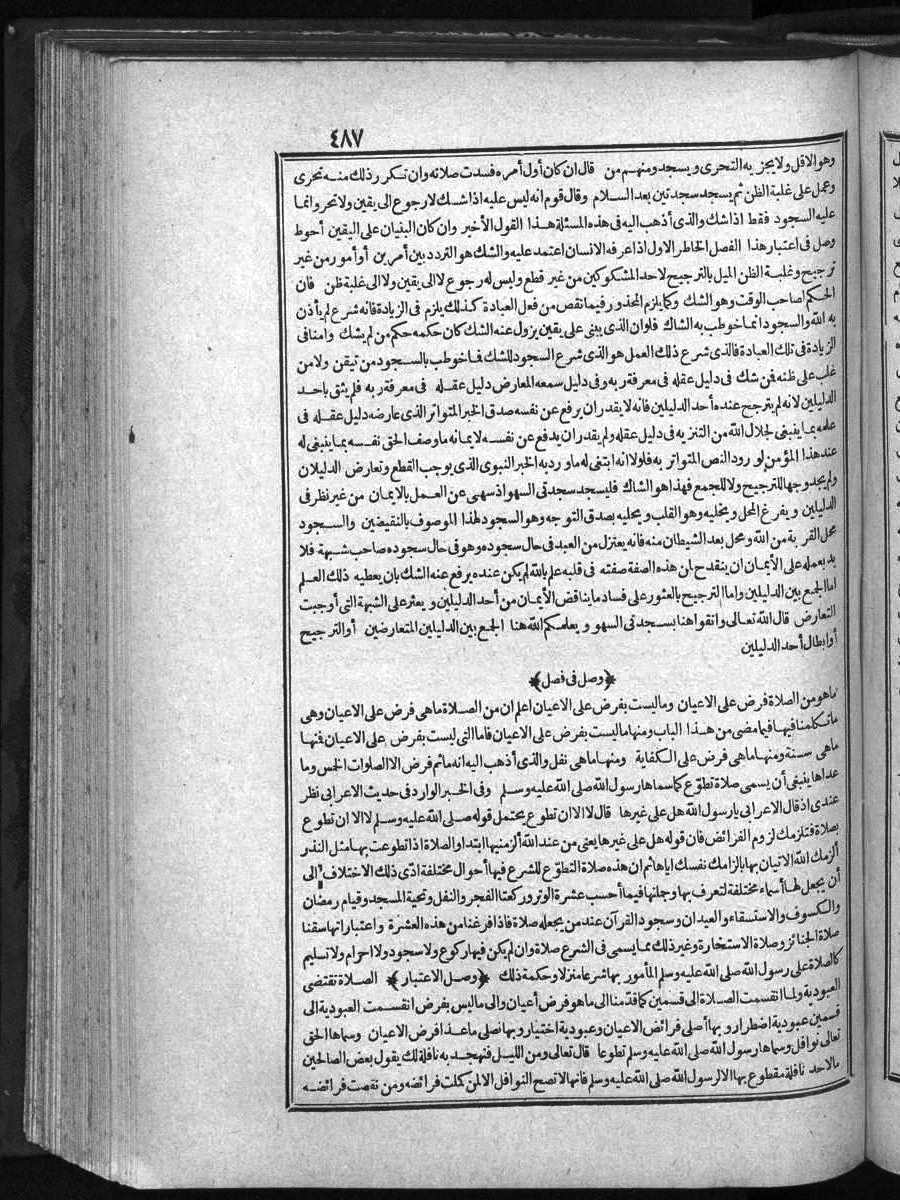 ٤٨٧
وهو الاقل ولا يجزيه التحرى ويسجد ومنهم من قال ان كان أول أمره فسدت صلاته وان تكرر ذلك منه تحرى
وعمل على غلبة الظن ثم يسجد سجدتين بعد السلام وقال قوم انه ليس عليه اذا شك لا رجوع الى يقين ولا تحر وانما
عليه السجود فقط اذا شك والذى أذهب اليه فى هذه المسئلة هذا القول الأخير وان كان البنيان على اليقين أحوط
وصل فى اعتبار هذا الفصل الخاطر الاول اذا عرفه الانسان اعتمد عليه والشك هو التردد بين أمرين أو أمور من غير
ترجيح وغلبة الظن الميل بالترجيح لاحد المشكوكين من غير قطع وليس له رجوع لا الى يقين ولا الى غلبة ظن فان
الحكم لصاحب الوقت وهو الشك وكما يلزم المحذور فيما نقص من فعل العبادة كذلك يلزم فى الزيادة فانه شرع لم يأذن
به الله والسجود انما خوطب به الشاك فلو ان الذى يبنى على يقين يزول عنه الشك كان حكمه حكم من لم يشك وامنافى
الزيادة فى تلك العبادة فالذى شرع ذلك العمل هو الذى شرع السجود للشك فما خوطب بالسجود من تيقن ولا من
غلب على ظنه فمن شك فى دليل عقله فى معرفة ربه وفى دليل سمعه المعارض دليل عقله فى معرفة ربه فلم يثق باحد
الدليلين لانه لم يترجح عنده أحد الدليلين فانه لا يقدر ان يرفع عن نفسه صدق الخبر المتواتر الذى عارضه دليل عقله فى
علمه بما ينبغى لجلال الله من التنزيه فى دليل عقله ولم يقدر ان يدفع عن نفسه لايمانه ما وصف الحق نفسه بما ينبغى له
عند هذا المؤمن لورود النص المتواتر به فلولا انه ابتغى له ما ورد به الخبر النبوى الذى يوجب القطع وتعارض الدليلان
ولم يجد وجها للترجيح ولا للجمع فهذا هو الشاك فليسجد سجدتى السهو اذ سهى عن العمل بالايمان من غير نظر فى
الدليلين ويفرغ المحل ويخليه وهو القلب ويحليه بصدق التوجه وهو السجود لهذا الموصوف بالنقيضين والسجود
محل القربة من الله ومحل بعد الشيطان منه فانه يعتزل من العبد فى حال سجوده وهو فى حال سجوده صاحب شبهة فلا
بد بعمله على الأيمان ان ينقدح لمن هذه الصفة صفته فى قلبه علم بالله لم يكن عنده يرفع عنه الشك بان يعطيه ذلك العلم
اما الجمع بين الدليلين واما الترجيح بالعثور على فساد ما يناقض الأيمان من أحد الدليلين ويعثر على الشبهة التى أوجبت
التعارض قال الله تعالى واتقوا هنا بسجدتى السهو ويعلمكم الله هنا الجمع بين الدليلين المتعارضين أو الترجيح
أو ابطال أحد الدليلين
﴿وصل فى فصل﴾
ما هو من الصلاة فرض على الاعيان وما ليست بفرض على الاعيان اعلم ان من الصلاة ما هى فرض على الاعيان وهى
ما تكلمنا فيها فيما مضى من هذا الباب ومنها ما ليست بفرض على الاعيان فاما التى ليست بفرض على الاعيان فنها
ما هى سنة ومنها ما هى فرض على الكفاية ومنها ما هى نفل والذى أذهب اليه انه ما ثم فرض الا الصلوات الخمس وما
عداها ينبغى أن يسمى صلاة تطوع كما سماها رسول الله صلى الله عليه وسلم وفى الخبر الوارد فى حديث الاعرابى نظر
عندى اذ قال الاعرابى يا رسول الله هل على غيرها قال لا الا ان تطوع يحتمل قوله صلى الله عليه وسلم لا الا ان تطوع
بصلاة فتلزمك لزوم الفرائض فان قوله هل على غيرها يعنى من عند الله ألزمنيها ابتداء والصلاة اذا تطوعت بها مثل النذر
ألزمك الله الاتيان بها بالزامك نفسك اياها ثم ان هذه صلاة التطوع للشرع فيها أحوال مختلفة أدى ذلك الاختلاف الى
أن يجعل لها أسماء مختلفة لتعرف بها وجملتها فيما أحسب عشرة الوتر وركعتا الفجر والنفل وتحية المسجد وقيام رمضان
والكسوف والاستسقاء والعيدان وسجود القرآن عند من يجعله صلاة فاذا فرغنا من هذه العشرة واعتباراتها سقنا
صلاة الجنائز وصلاة الاستخارة وغير ذلك مما يسمى فى الشرع صلاة وان لم يكن فيها ركوع ولا سجود ولا احرام ولا تسليم
كالصلاة على رسول الله صلى الله عليه وسلم المأمور بها شرعا منزلا وحكمة ذلك ﴿وصل الاعتبار﴾ الصلاة تقتضى
العبودية ولما انقسمت الصلاة الى قسمين كما قدمنا الى ما هو فرض أعيان والى ما ليس بفرض انقسمت العبودية الى
قسمين عبودية اضطرار وبها أصلى فرائض الاعيان وعبودية اختيار وبها نصلى ما عدا فرض الاعيان وسماها الحق
تعالى نوافل وسماها رسول الله صلى الله عليه وسلم تطوعا قال تعالى ومن الليل فتهجد به نافلة لك يقول بعض الصالحين
ما لاحد نافلة مقطوع بها الا لرسول الله صلى الله عليه وسلم فانها لا تصح النوافل الا لمن كملت فرائضه ومن نقصت فرائضه